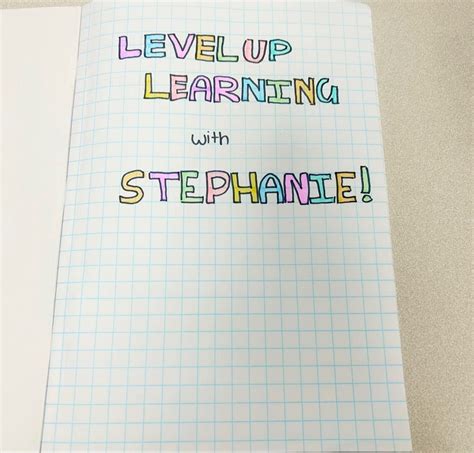 LEVEL UP
LEARNING
with
STEPHANIE!